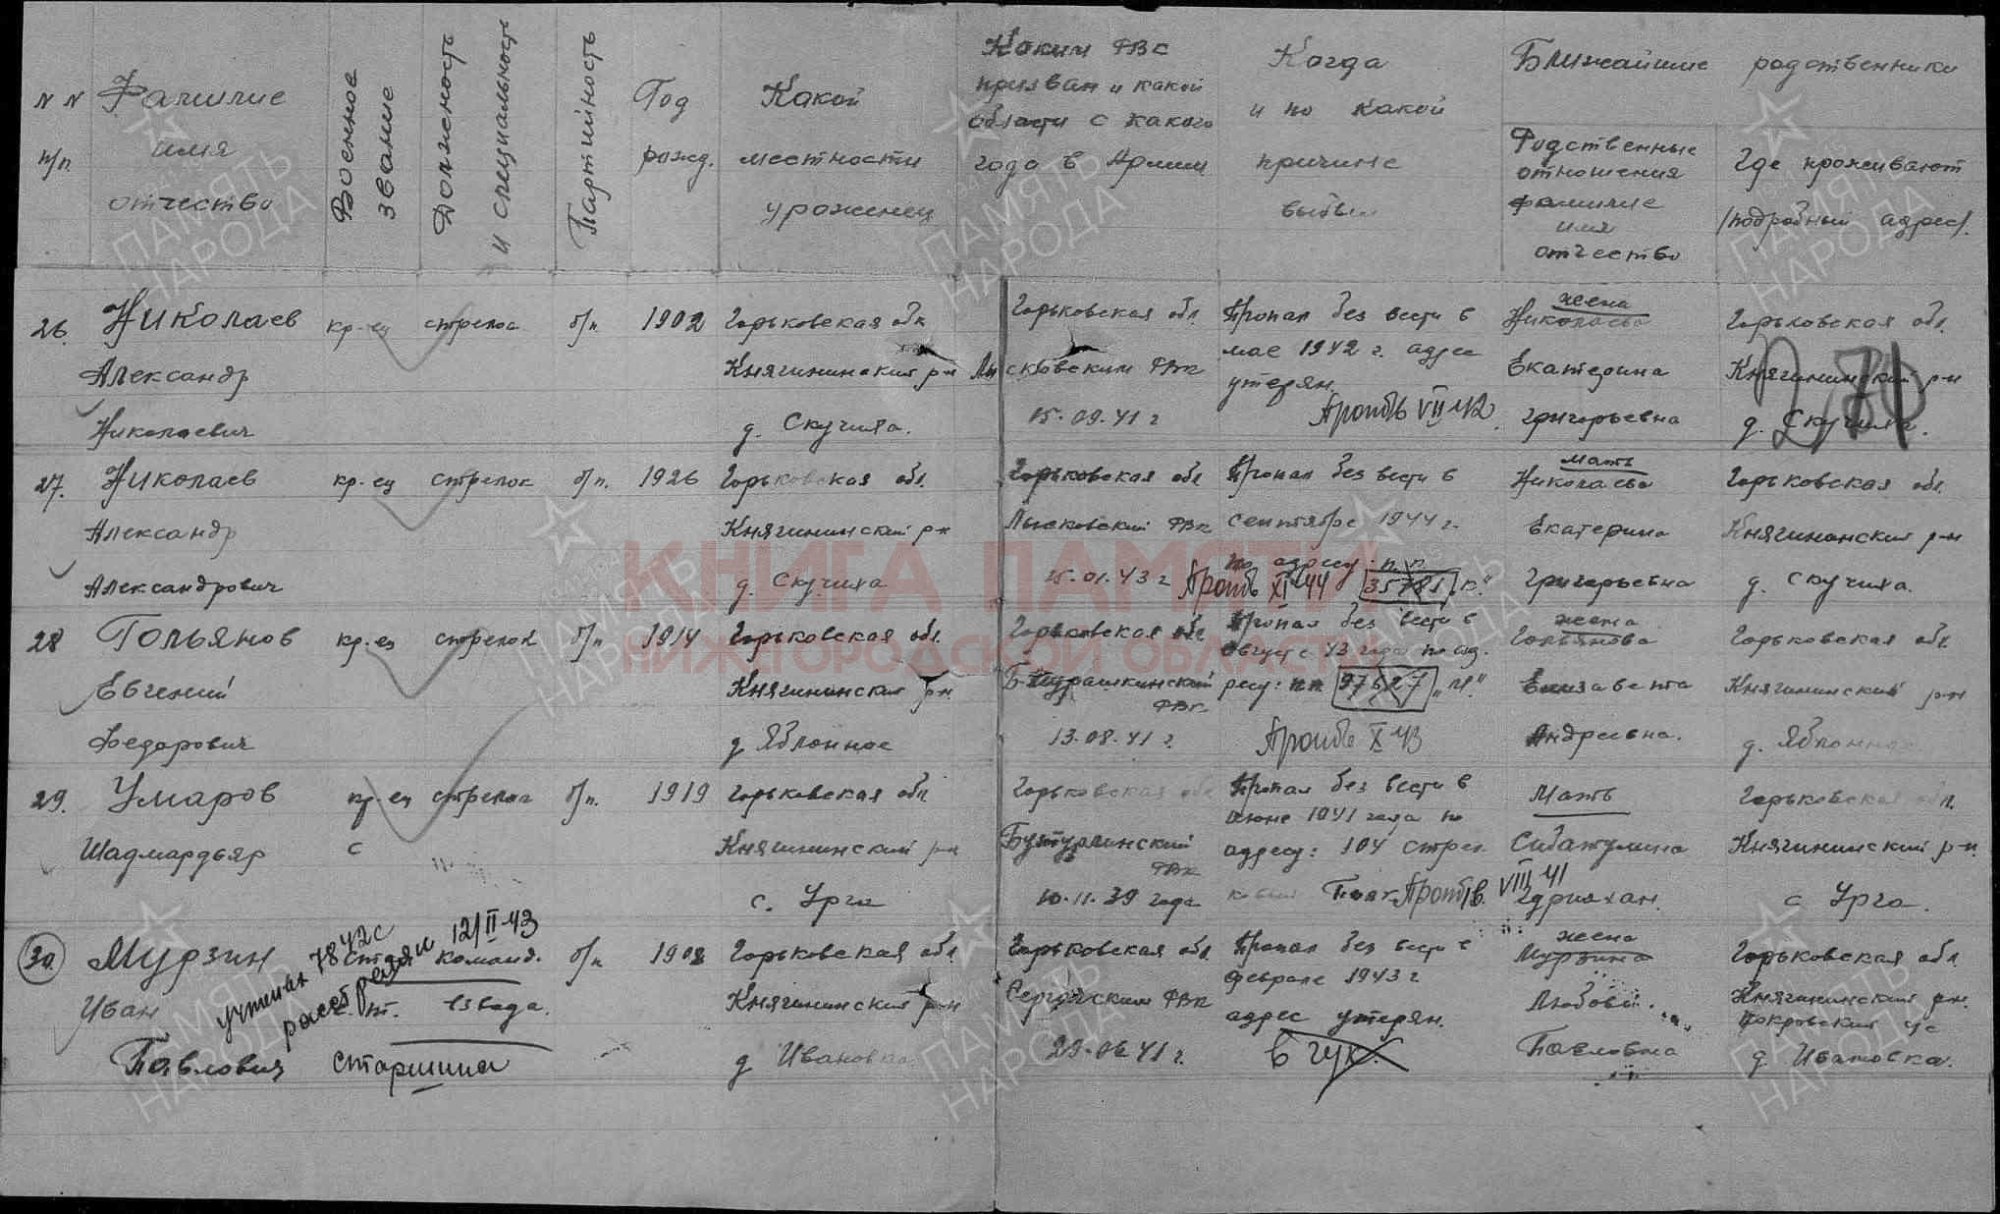 N N п/п.
Фамилие имя отчество
Военное звание
Должность и специальность
Партийность
Год рожд.
Какой местности уроженец
Каким РВК призван и какой области с какого года в Армии
Когда и по какой причине выбыл
Ближайшие родственники
Родственные отношения фамилие имя отчество
Где проживают /подробный адрес/.
26. Николаев кр-ец стрелок б/п. 1902 Горьковская обл Горьковская обл. Пропал без вести в жена Николаева Горьковская обл.
Александр Княгининский р-н Лысковским РВК мае 1942 г. адрес утерян. Екатерина Княгининский р-н
Николаевич д. Скучиха. 15.09.41 г VII 42 Григорьевна д. Скучиха.
27. Николаев кр-ец стрелок б/п. 1926 Горьковская обл. Горьковская обл Пропал без вести в мать Николаева Горьковская обл.
Александр Княгининский р-н Лысковский РВК сентябре 1944 г. Екатерина Княгининский р-н
Александрович д. Скучиха 15.01.43 г по адресу: п.п. XI 44 35781 "К." Григорьевна д. Скучиха.
28 Гольянов кр-ец стрелок б/п 1914 Горьковская обл. Горьковская обл Пропал без вести в жена Гольянова Горьковская обл.
Евгений Княгининский р-н Б-Мурашкинский РВК августе 43 года по адресу: пп 97627 "М." Елизавета Княгининский р-н
Федорович д Яблонное 13.08.41 г. X 43 Андреевна. д. Яблонное
29. Умаров кр-ец стрелок б/п. 1919 Горьковская обл Горьковская обл Пропал без вести в Мать Горьковская обл.
Шадмардьяр с Княгининский р-н Бутурлинский РВК июне 1941 года по адресу: 104 стрел. Княгининский р-н.
с. Урга 10.11.39 года полк VIII 41 с Урга.
30. Мурзин команд. б/п 1908 Горьковская обл Горьковская обл. Пропал без вести в жена Мурзина Горьковская обл.
Иван взвода. Княгининский р-н Сергачским РВК феврале 1943 г адрес утерян. Любовь Княгининский р-н. Покровский с/с
Павлович старшина д Ивановка 29.06.41 г. в ГУК. Павловна д Ивановка.
расстрелян 12/II-43
ПАМЯТЬ НАРОДА
КНИГА ПАМЯТИ
НИЖЕГОРОДСКОЙ ОБЛАСТИ